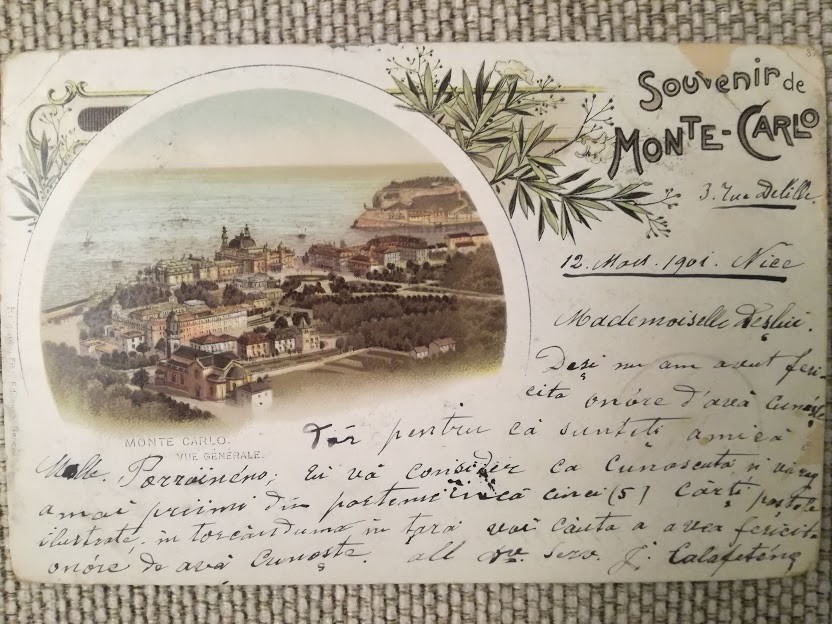 Souvenir de
MONTE-CARLO
3. rue Delille.
12. Mart. 1901. Nice
Mademoiselle
Deși nu am avut feri-
cita onóre d'avă cunoște
MONTE CARLO.
VUE GÉNÉRALE.
Iar pentru că sunteti amică
Melle. Eu vă consider ca cunoscută si vă rog
a mai priimi din parte cinci (5) cărti postale
ilustrate, in torcânduma in tară voi căuta a avea fericita
onóre de avă cunoște. all serv. J.